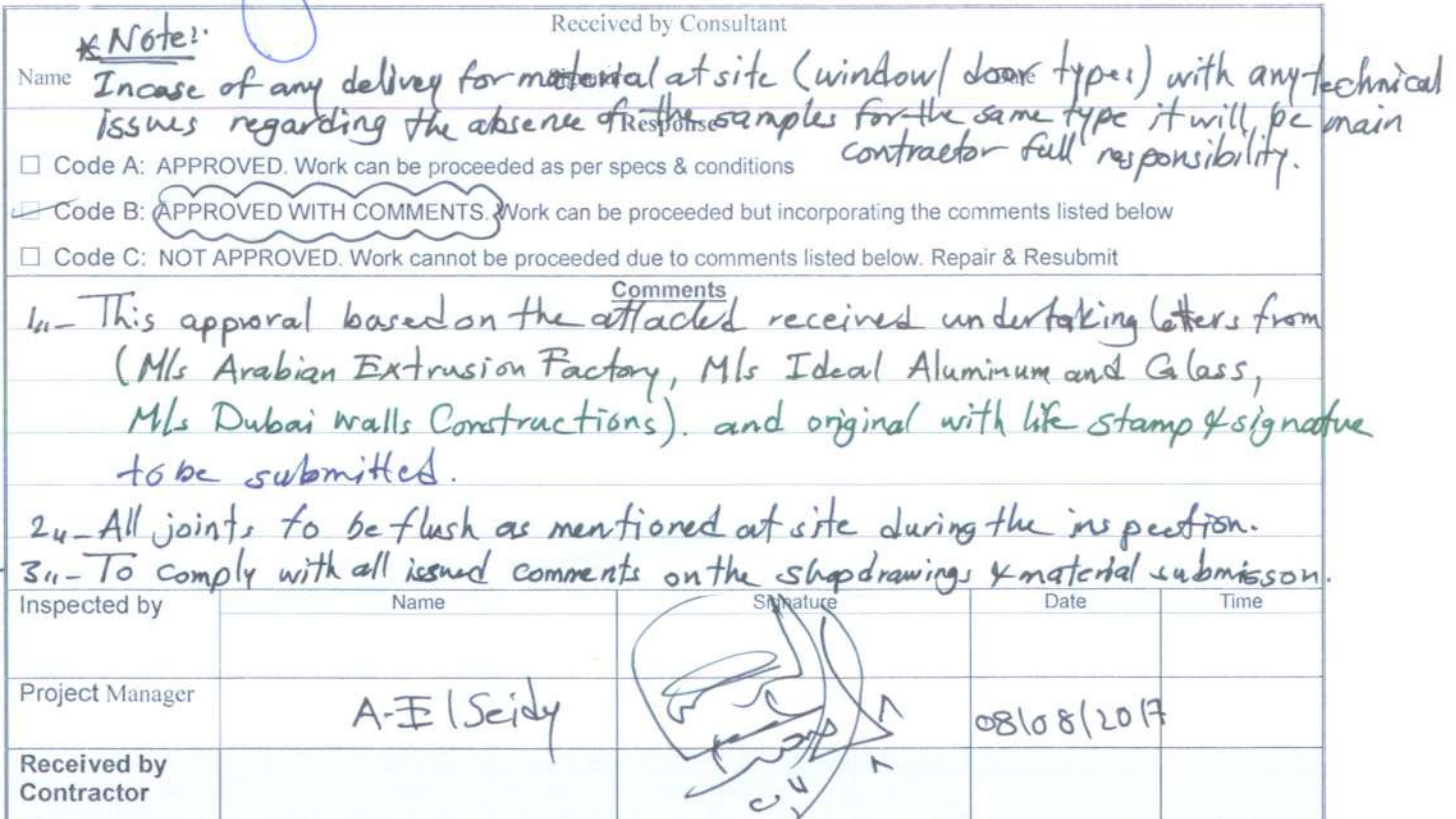 Received by Consultant
*Note:
Name
Incase of any delivey for material at site (window/ door types) with any technical
issues regarding the absence of the samples for the same type it will be main
contractor full responsibility.
Response
☐ Code A: APPROVED. Work can be proceeded as per specs & conditions
Code B: APPROVED WITH COMMENTS. Work can be proceeded but incorporating the comments listed below
☐ Code C: NOT APPROVED. Work cannot be proceeded due to comments listed below. Repair & Resubmit
Comments
1,,- This approval based on the attacted received undertaking letters from
(M/s Arabian Extrusion Factory, M/s Ideal Aluminum and Glass,
M/s Dubai Walls Constructions). and original with life stamp & signature
to be submitted.
2,,- All joints to be flush as mentioned at site during the inspection.
3,,- To comply with all issued comments on the shopdrawings & material submisson.
Inspected by Name Signature Date Time
Project Manager A-ElSeidy 08/08/2017
Received by
Contractor